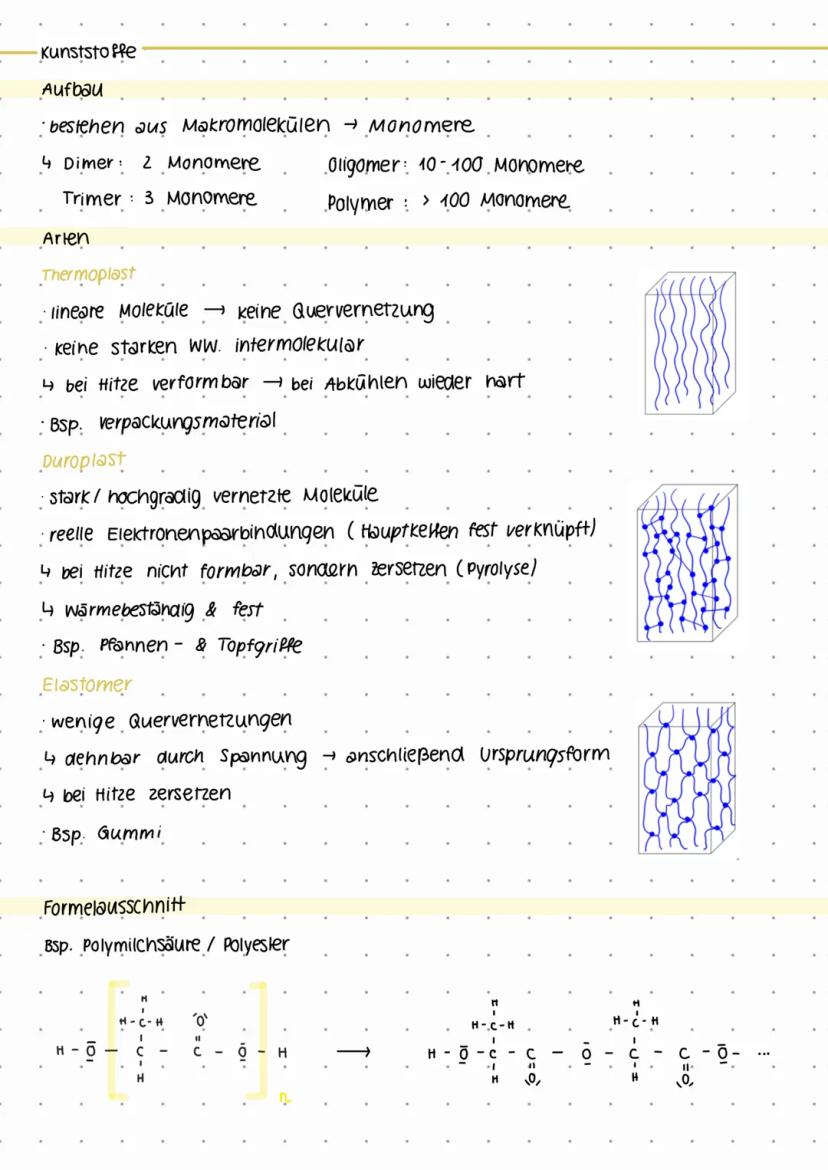 Kunststoffe
Aufbau
· bestehen aus Makromolekülen → Monomere
↳ Dimer: 2 Monomere Oligomer: 10-100 Monomere
Trimer: 3 Monomere Polymer: > 100 Monomere
Arten
Thermoplast
· lineare Moleküle → keine Quervernetzung
· keine starken WW. intermolekular
↳ bei Hitze verformbar → bei Abkühlen wieder hart
· Bsp. Verpackungsmaterial
Duroplast
· stark / hochgradig vernetzte Moleküle
· reelle Elektronenpaarbindungen (Hauptketten fest verknüpft)
↳ bei Hitze nicht formbar, sondern zersetzen (Pyrolyse)
↳ Wärmebeständig & fest
· Bsp. Pfannen- & Topfgriffe
Elastomer
· wenige Quervernetzungen
↳ dehnbar durch Spannung → anschließend Ursprungsform
↳ bei Hitze zersetzen
· Bsp. Gummi
Formelausschnitt
Bsp. Polymilchsäure / Polyester
H H H
H-C-H O H-C-H H-C-H
H - O - C - C - O - H → H - O - C - C - O - C - C - O - ...
H H O H O
n